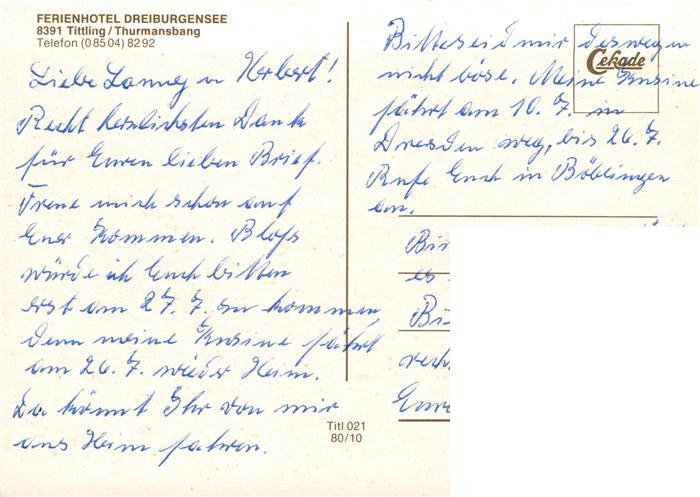 FERIENHOTEL DREIBURGENSEE
8391 Tittling/Thurmansbang
Telefon (0 85 04) 82 92
Liebe u Herbert!
Recht herzlichsten Dank
für Euren lieben Brief.
Freue mich schon auf
Euer Kommen. Bloß
würde ich Euch bitten
erst am 27. 7. zu kommen,
denn meine Kusine fährt
am 26. 7. wieder Heim.
Da könnt Ihr von mir
aus Heim fahren.
Titl 021
80/10
Cekade
Bitte seid mir deswegen
nicht böse. Meine Kusine
fährt am 10. 7. in
Dresden weg, bis 26. 7.
Rufe Euch in Böblingen
an.
Bi
es
Bi
rech
Eure